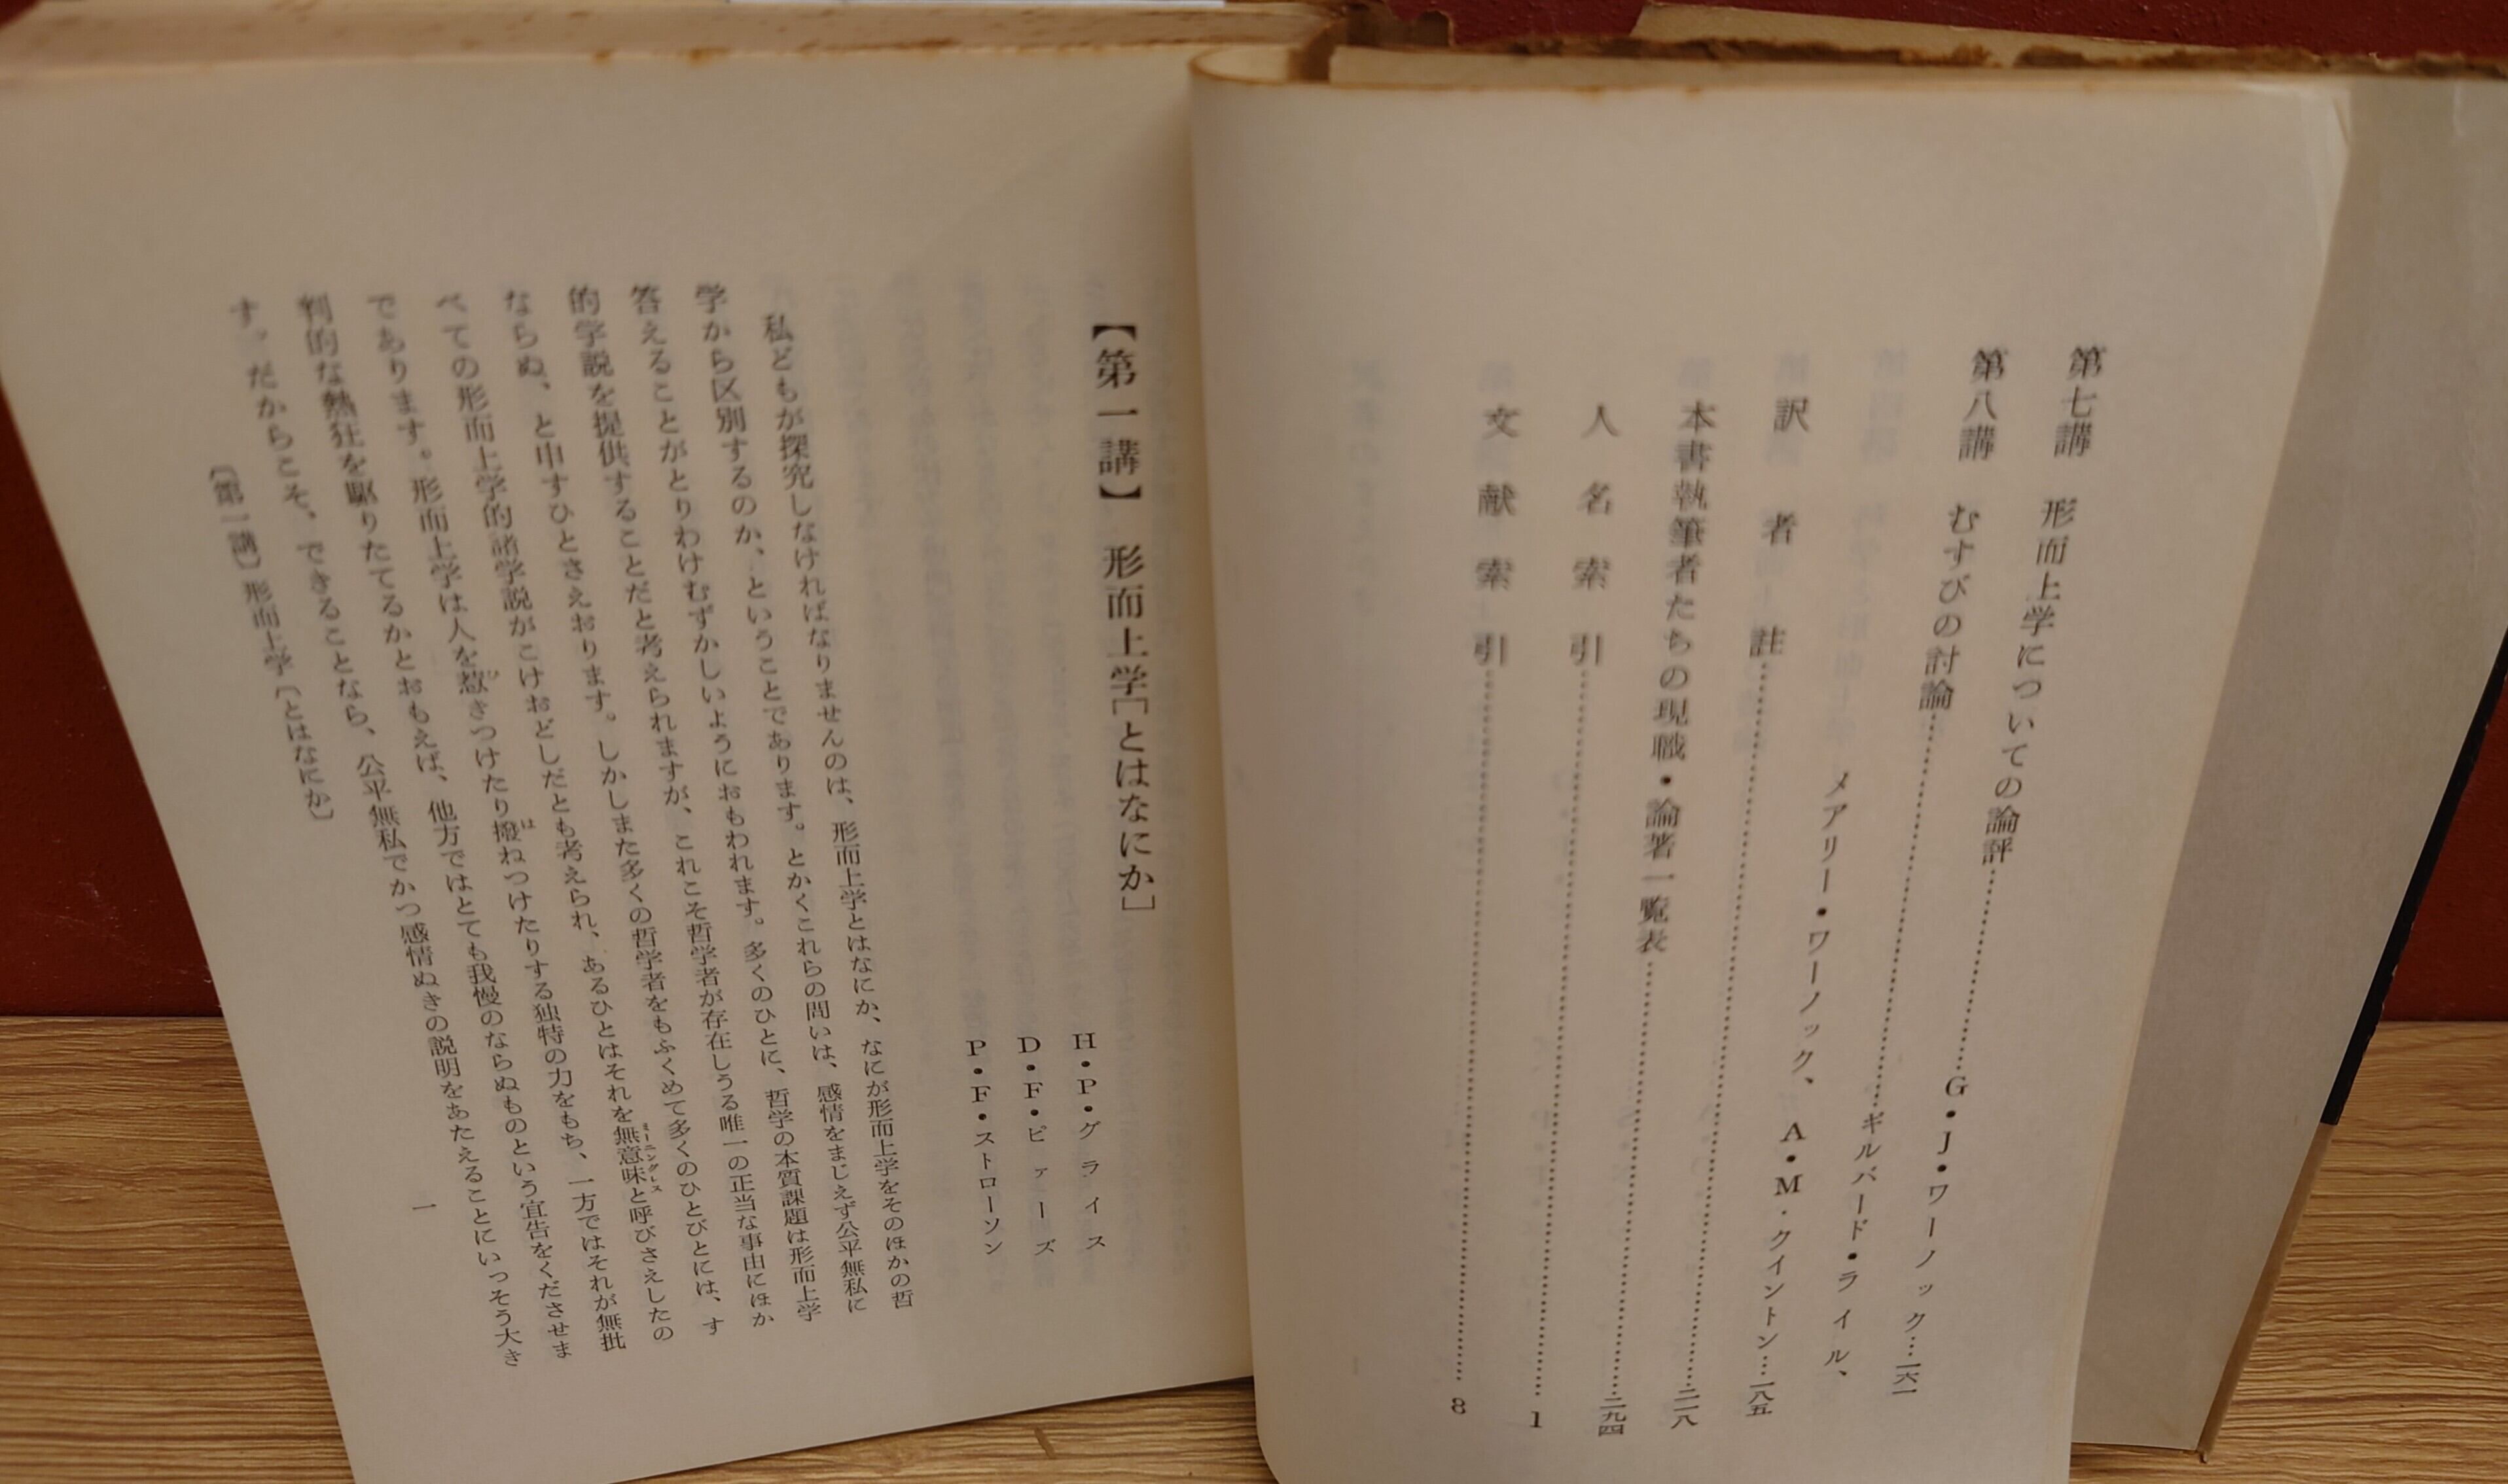 第七講 形而上学についての論評……G・J・ワーノック…一六一
第八講 むすびの討論……ギルバード・ライル、
メアリー・ワーノック、A・M・クイントン…一八五
訳者註……二一八
本書執筆者たちの現職・論著一覧表……二九四
人名索引……1
文献索引……8
【第一講】 形而上学[とはなにか]
H・P・グライス
D・F・ピァーズ
P・F・ストローソン
私どもが探究しなければなりませんのは、形而上学とはなにか、なにが形而上学をそのほかの哲
学から区別するのか、ということであります。とかくこれらの問いは、感情をまじえず公平無私に
答えることがとりわけむずかしいようにおもわれます。多くのひとに、哲学の本質課題は形而上学
的学説を提供することだと考えられますが、これこそ哲学者が存在しうる唯一の正当な事由にほか
ならぬ、と申すひとさえおります。しかしまた多くの哲学者をもふくめて多くのひとびとには、す
べての形而上学的諸学説がこけおどしだとも考えられ、あるひとはそれを無意味ミーニングレスと呼びさえしたの
であります。形而上学は人を惹ひきつけたり撥はねつけたりする独特の力をもち、一方ではそれが無批
判的な熱狂を駆りたてるかとおもえば、他方ではとても我慢のならぬものという宣告をくださせま
す。だからこそ、できることなら、公平無私でかつ感情ぬきの説明をあたえることにいっそう大き
[第一講] 形而上学[とはなにか]
一